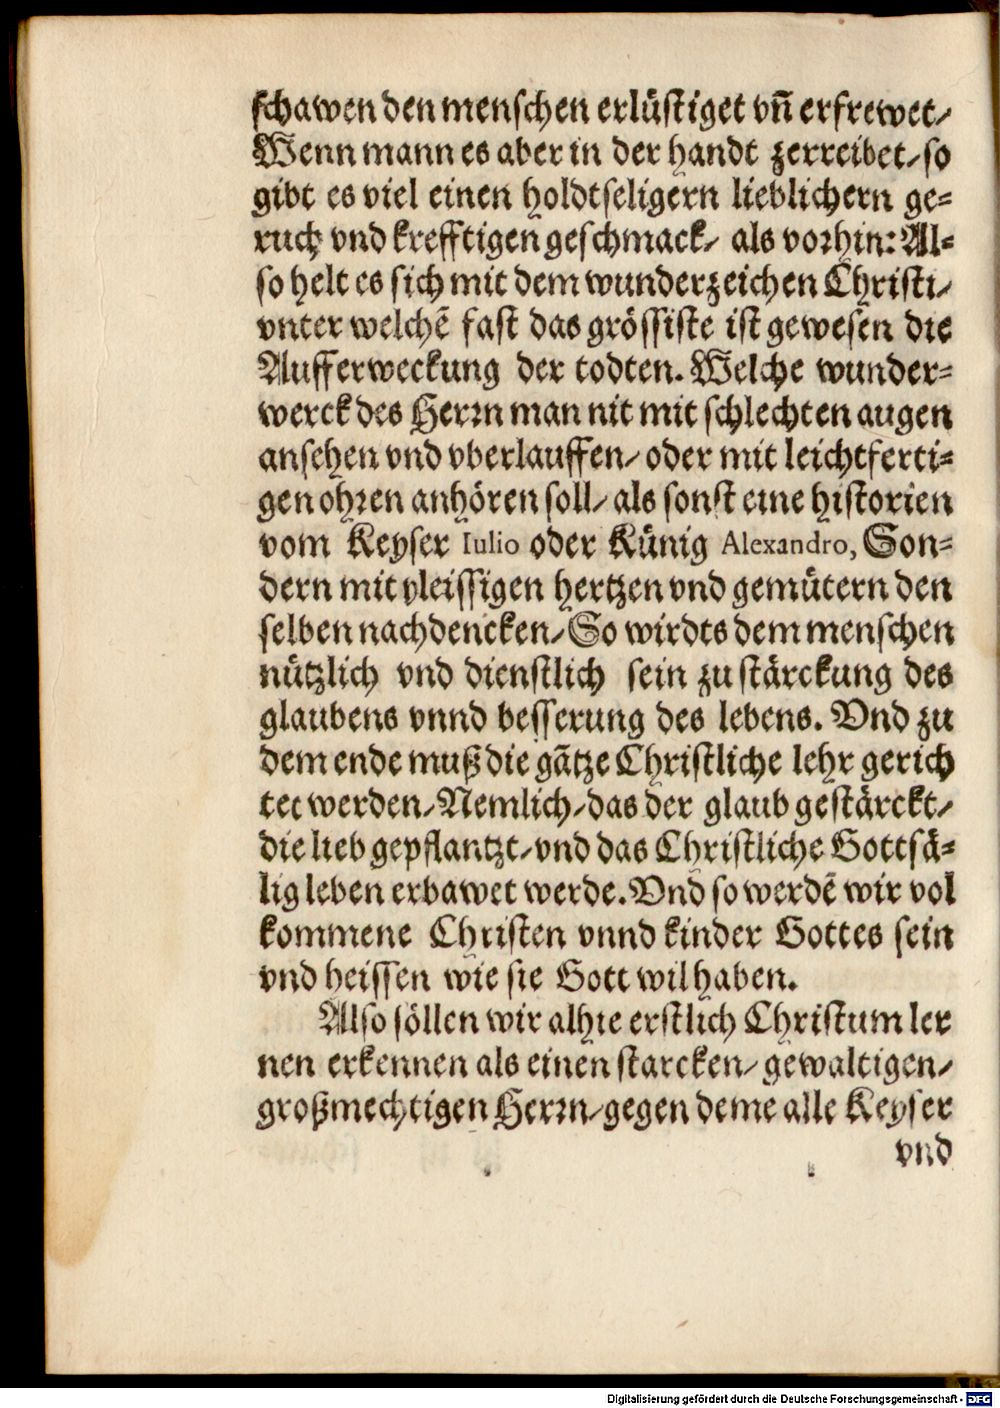 schawen den menschen erlüstiget vn̄ erfrewet/
Wenn mann es aber in der handt zerreibet/so
gibt es viel einen holdtseligern lieblichern ge=
ruch vnd krefftigen geschmack/ als vorhin: Al=
so helt es sich mit dem wunderzeichen Christi/
vnter welchē fast das grössiste ist gewesen die
Aufferweckung der todten. Welche wunder=
werck des Herrn man nit mit schlechten augen
ansehen vnd vberlauffen/ oder mit leichtferti=
gen ohren anhören soll/ als sonst eine historien
vom Keyser Iulio oder Künig Alexandro, Son=
dern mit vleissigen hertzen vnd gemütern den
selben nachdencken/ So wirdts dem menschen
nützlich vnd dienstlich sein zu stärckung des
glaubens vnnd besserung des lebens. Vnd zu
dem ende muß die gātze Christliche lehr gerich
tet werden/ Nemlich/ das der glaub gestärckt/
die lieb gepflantzt/ vnd das Christliche Gottsä=
lig leben erbawet werde. Vnd so werdē wir vol
kommene Christen vnnd kinder Gottes sein
vnd heissen wie sie Gott wil haben.
Also söllen wir alhie erstlich Christum ler
nen erkennen als einen starcken/ gewaltigen/
großmechtigen Herrn/ gegen deme alle Keyser
vnd
Digitalisierung gefördert durch die Deutsche Forschungsgemeinschaft - DFG